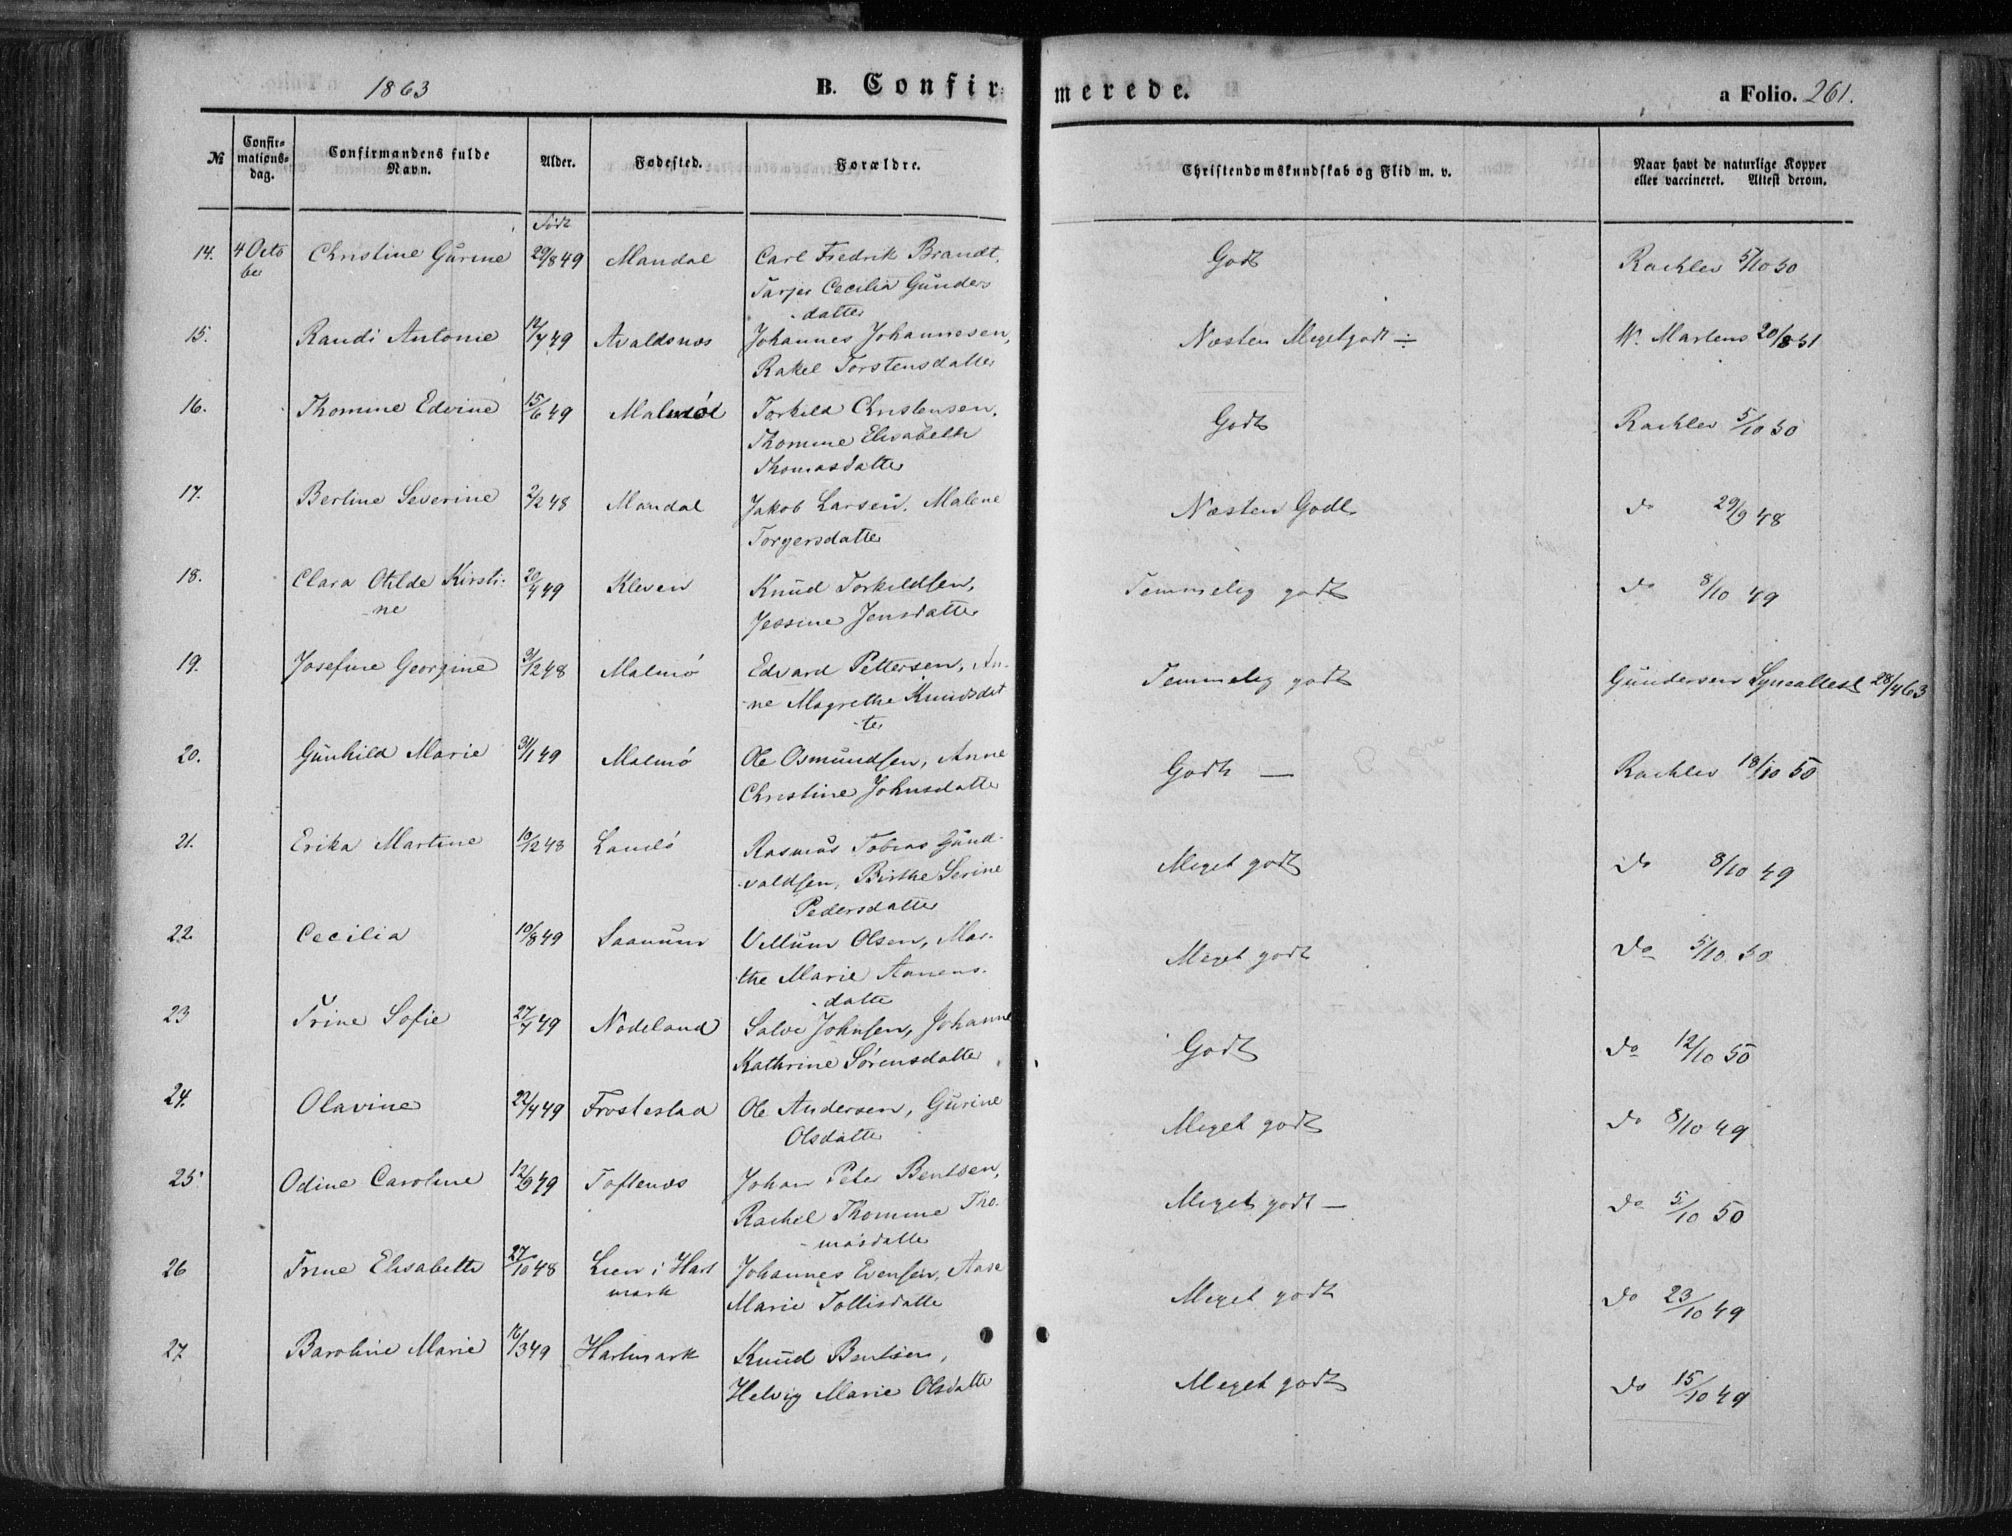 1863 B. Confirmerede. a Folio. 261.
№ Confirmationsdag. Confirmandens fulde Navn. Alder. Fødested. Forældre. Christendomskundskab og Flid m. v. Naar havt de naturlige Kopper eller vaccineret. Attest derom.
Født
14. 4 Octo Christine Gurine 29/8 49 Mandal Carl Fredrik Brandt, Godt Rachlev 5/10 50
ber Tarjer Cecilia Gunders
-datter
15. Randi Antonie 12/7 49 Avaldsnes Johannes Johannesen, Næsten Megetgodt ÷ W. Martens 20/8 51
Rakel Torstensdatter
16. Thomine Edvine 15/6 49 Malmø Torkild Christensen, Godt Rachlev 5/10 50
Thomine Elisabeth
Thomasdatter
17. Bertine Severine 2/2 48 Mandal Jakob Larsen, Malene Næsten Godt do 29/9 48
Torgersdatter
18. Clara Otilde Kirsti- 20/4 49 Kleven Knud Torkildsen, Temmelig godt do 8/10 49
-ne Jessine Jensdatter
19. Josefine Georgine 31/12 48 Malmø Edvard Pettersen, An- Temmelig godt Gundersens Syneattest 28/4 63
-ne Magrethe Knudsdat
-ter
20. Gunhild Marie 31/1 49 Malmø Ole Osmundsen, Anne Godt — Rachlev 18/10 50
Christine Johnsdatter
21. Erika Martine 10/12 48 Landø Rasmus Tobias Gund- Meget godt do 8/10 49
-valdsen, Birthe Serine
Pedersdatter
22. Cecilia 10/8 49 Saanum Villum Olsen, Mar- Meget godt do 5/10 50
-the Marie Aanens-
-datter
23 Trine Sofie 27/7 49 Nodeland Salve Johnsen, Johanne Godt do 12/10 50
Kathrine Sørensdatter
24. Olavine 22/4 49 Frostestad Ole Andersen, Gurine Meget godt do 8/10 49
Olsdatter
25. Odine Caroline 12/9 49 Toftenes Johan Peter Bentsen, Meget godt — do 5/10 50
Rachel Thomine Tho-
-masdatter
26 Trine Elisabeth 27/10 48 Lien i Hart Johannes Evensen, Aase Meget godt do 23/10 49
mark Marie Tollisdatter
27. Baroline Marie 16/3 49 Hartmark Knud Bentsen, Meget godt do 15/10 49
Helvig Marie Olsdatter